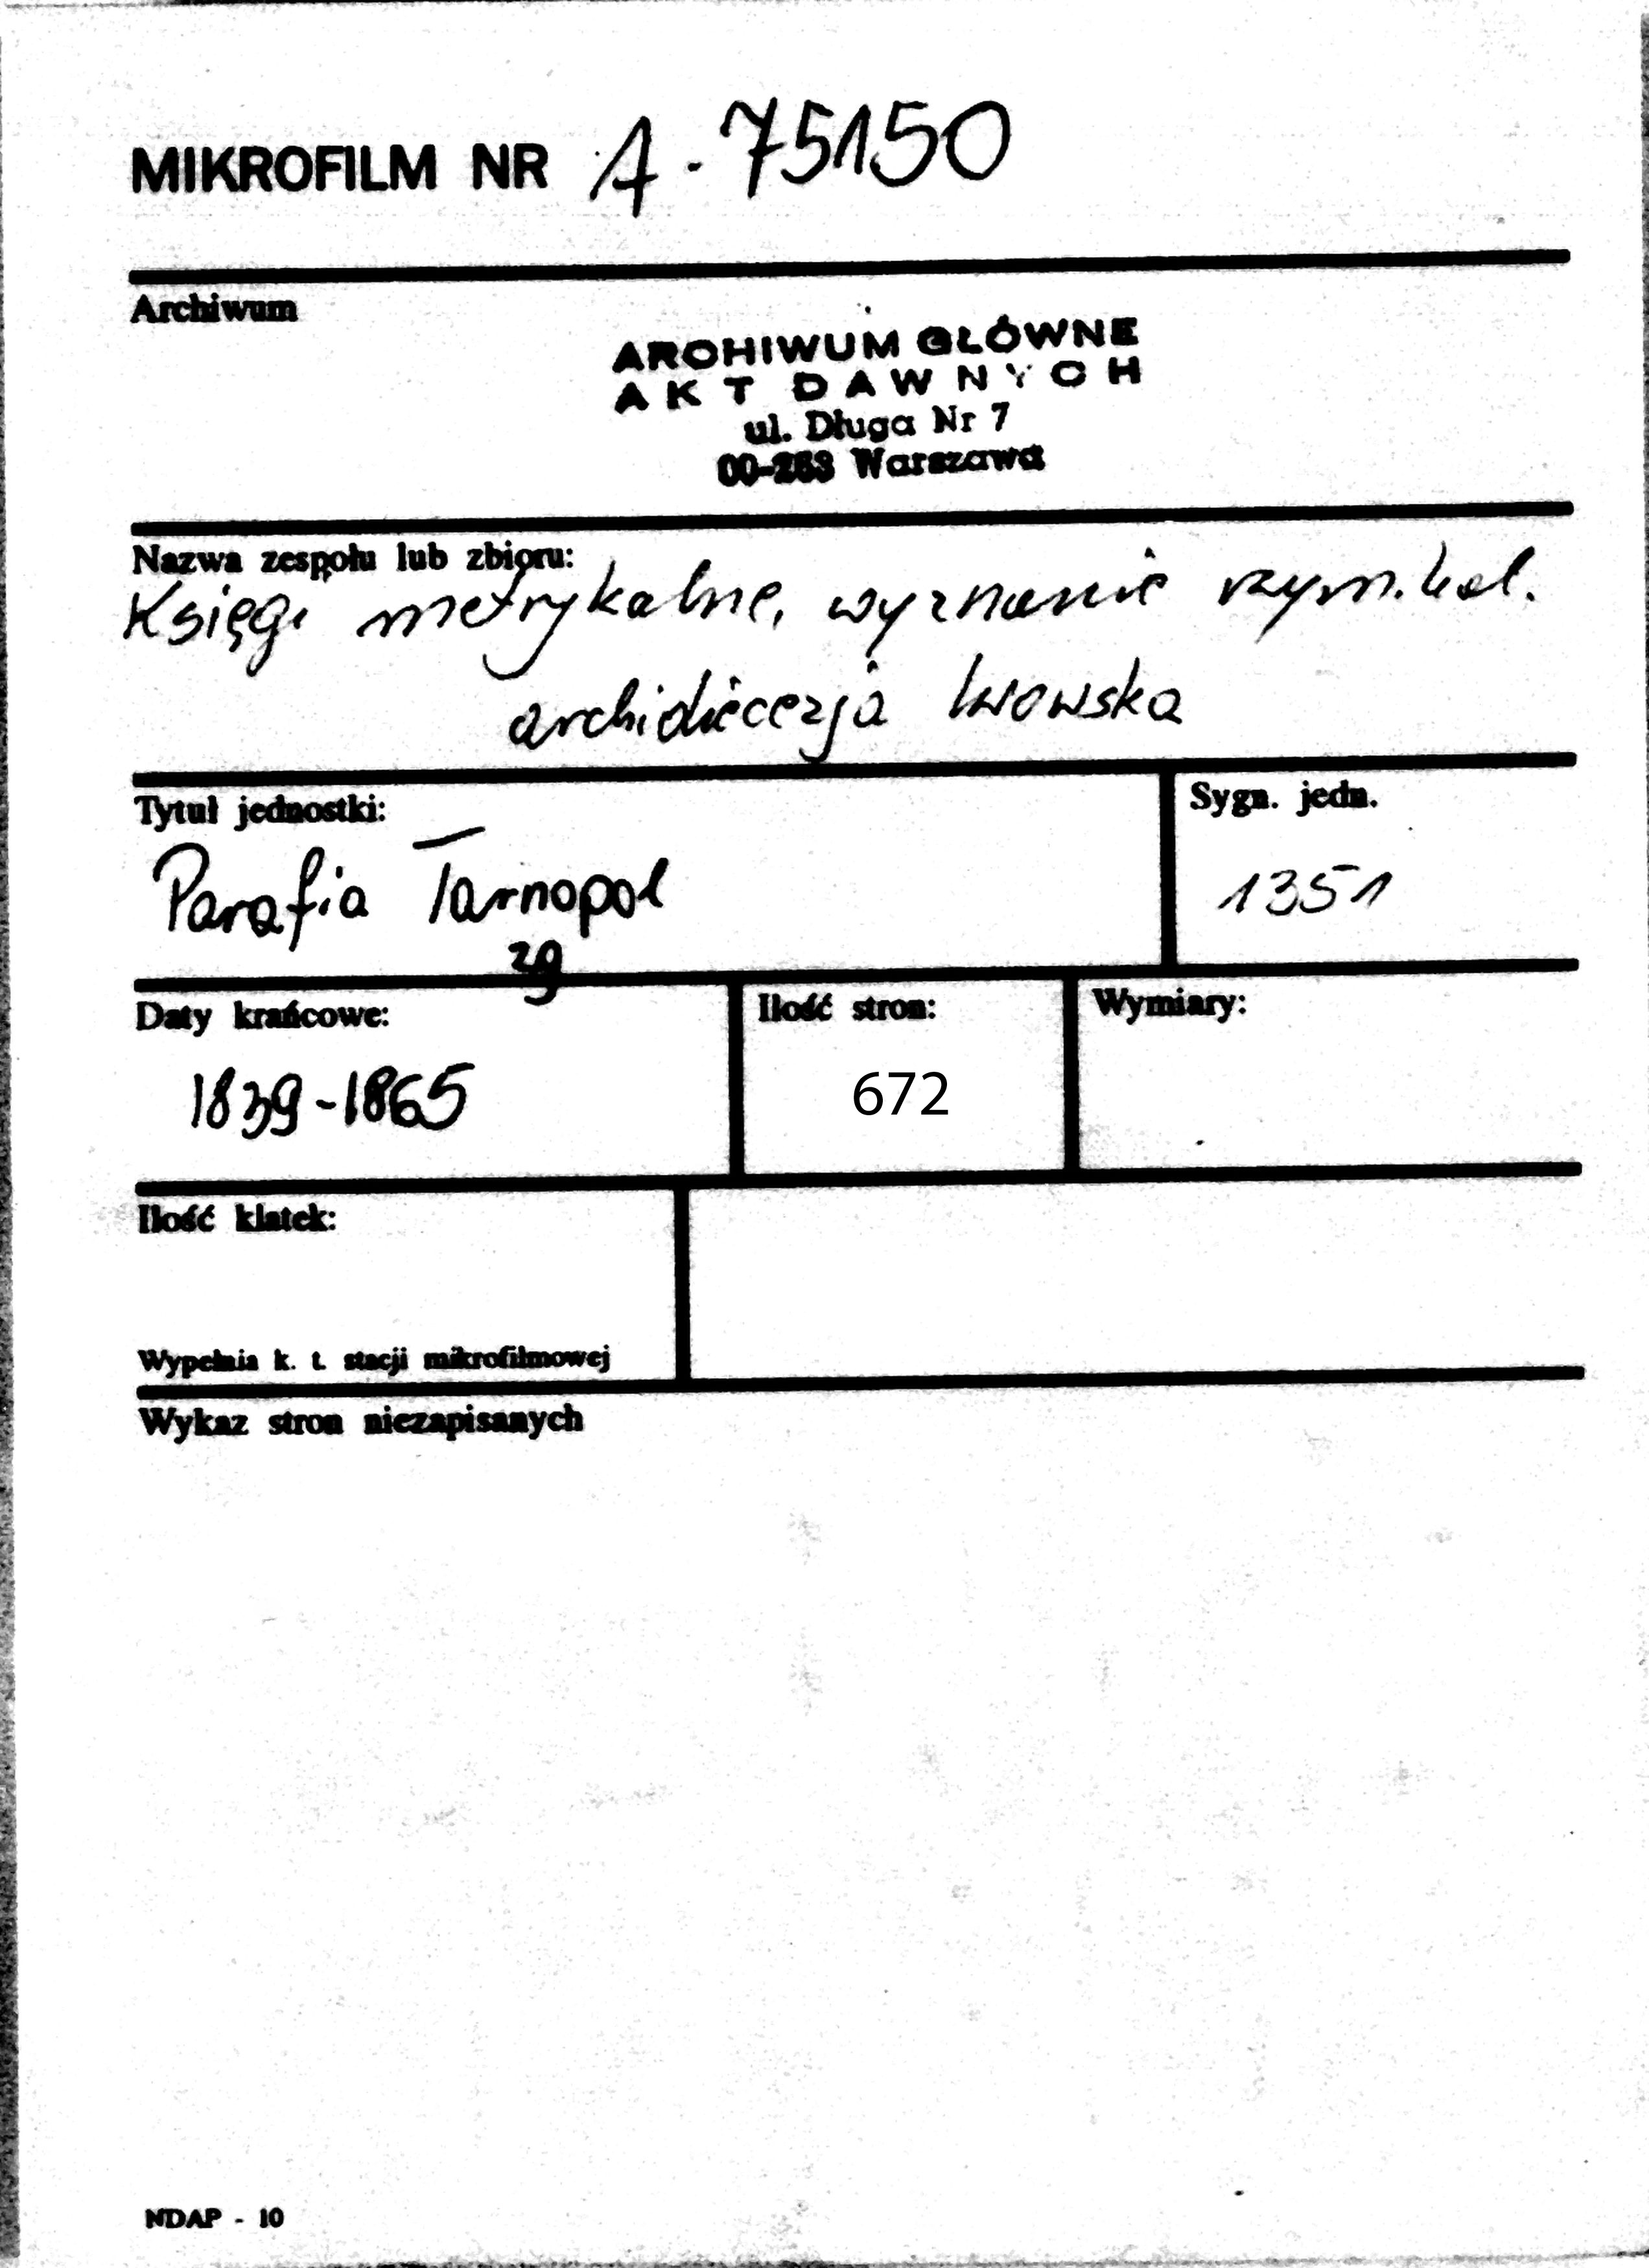 MIKROFILM NR A-75150
Archiwum
ARCHIWUM GŁÓWNE
AKT DAWNYCH
ul. Długa Nr 7
00-263 Warszawa
Nazwa zespołu lub zbioru:
Księgi metrykalne, wyznanie rzym.kat.
archidiecezja lwowska
Tytuł jednostki:
Sygn. jedn.
Parafia Tarnopol
1351
zg
Daty krańcowe:
Ilość stron:
Wymiary:
1839-1865
672
Ilość klatek:
Wypełnia k. t. stacji mikrofilmowej
Wykaz stron niezapisanych
NDAP - 10